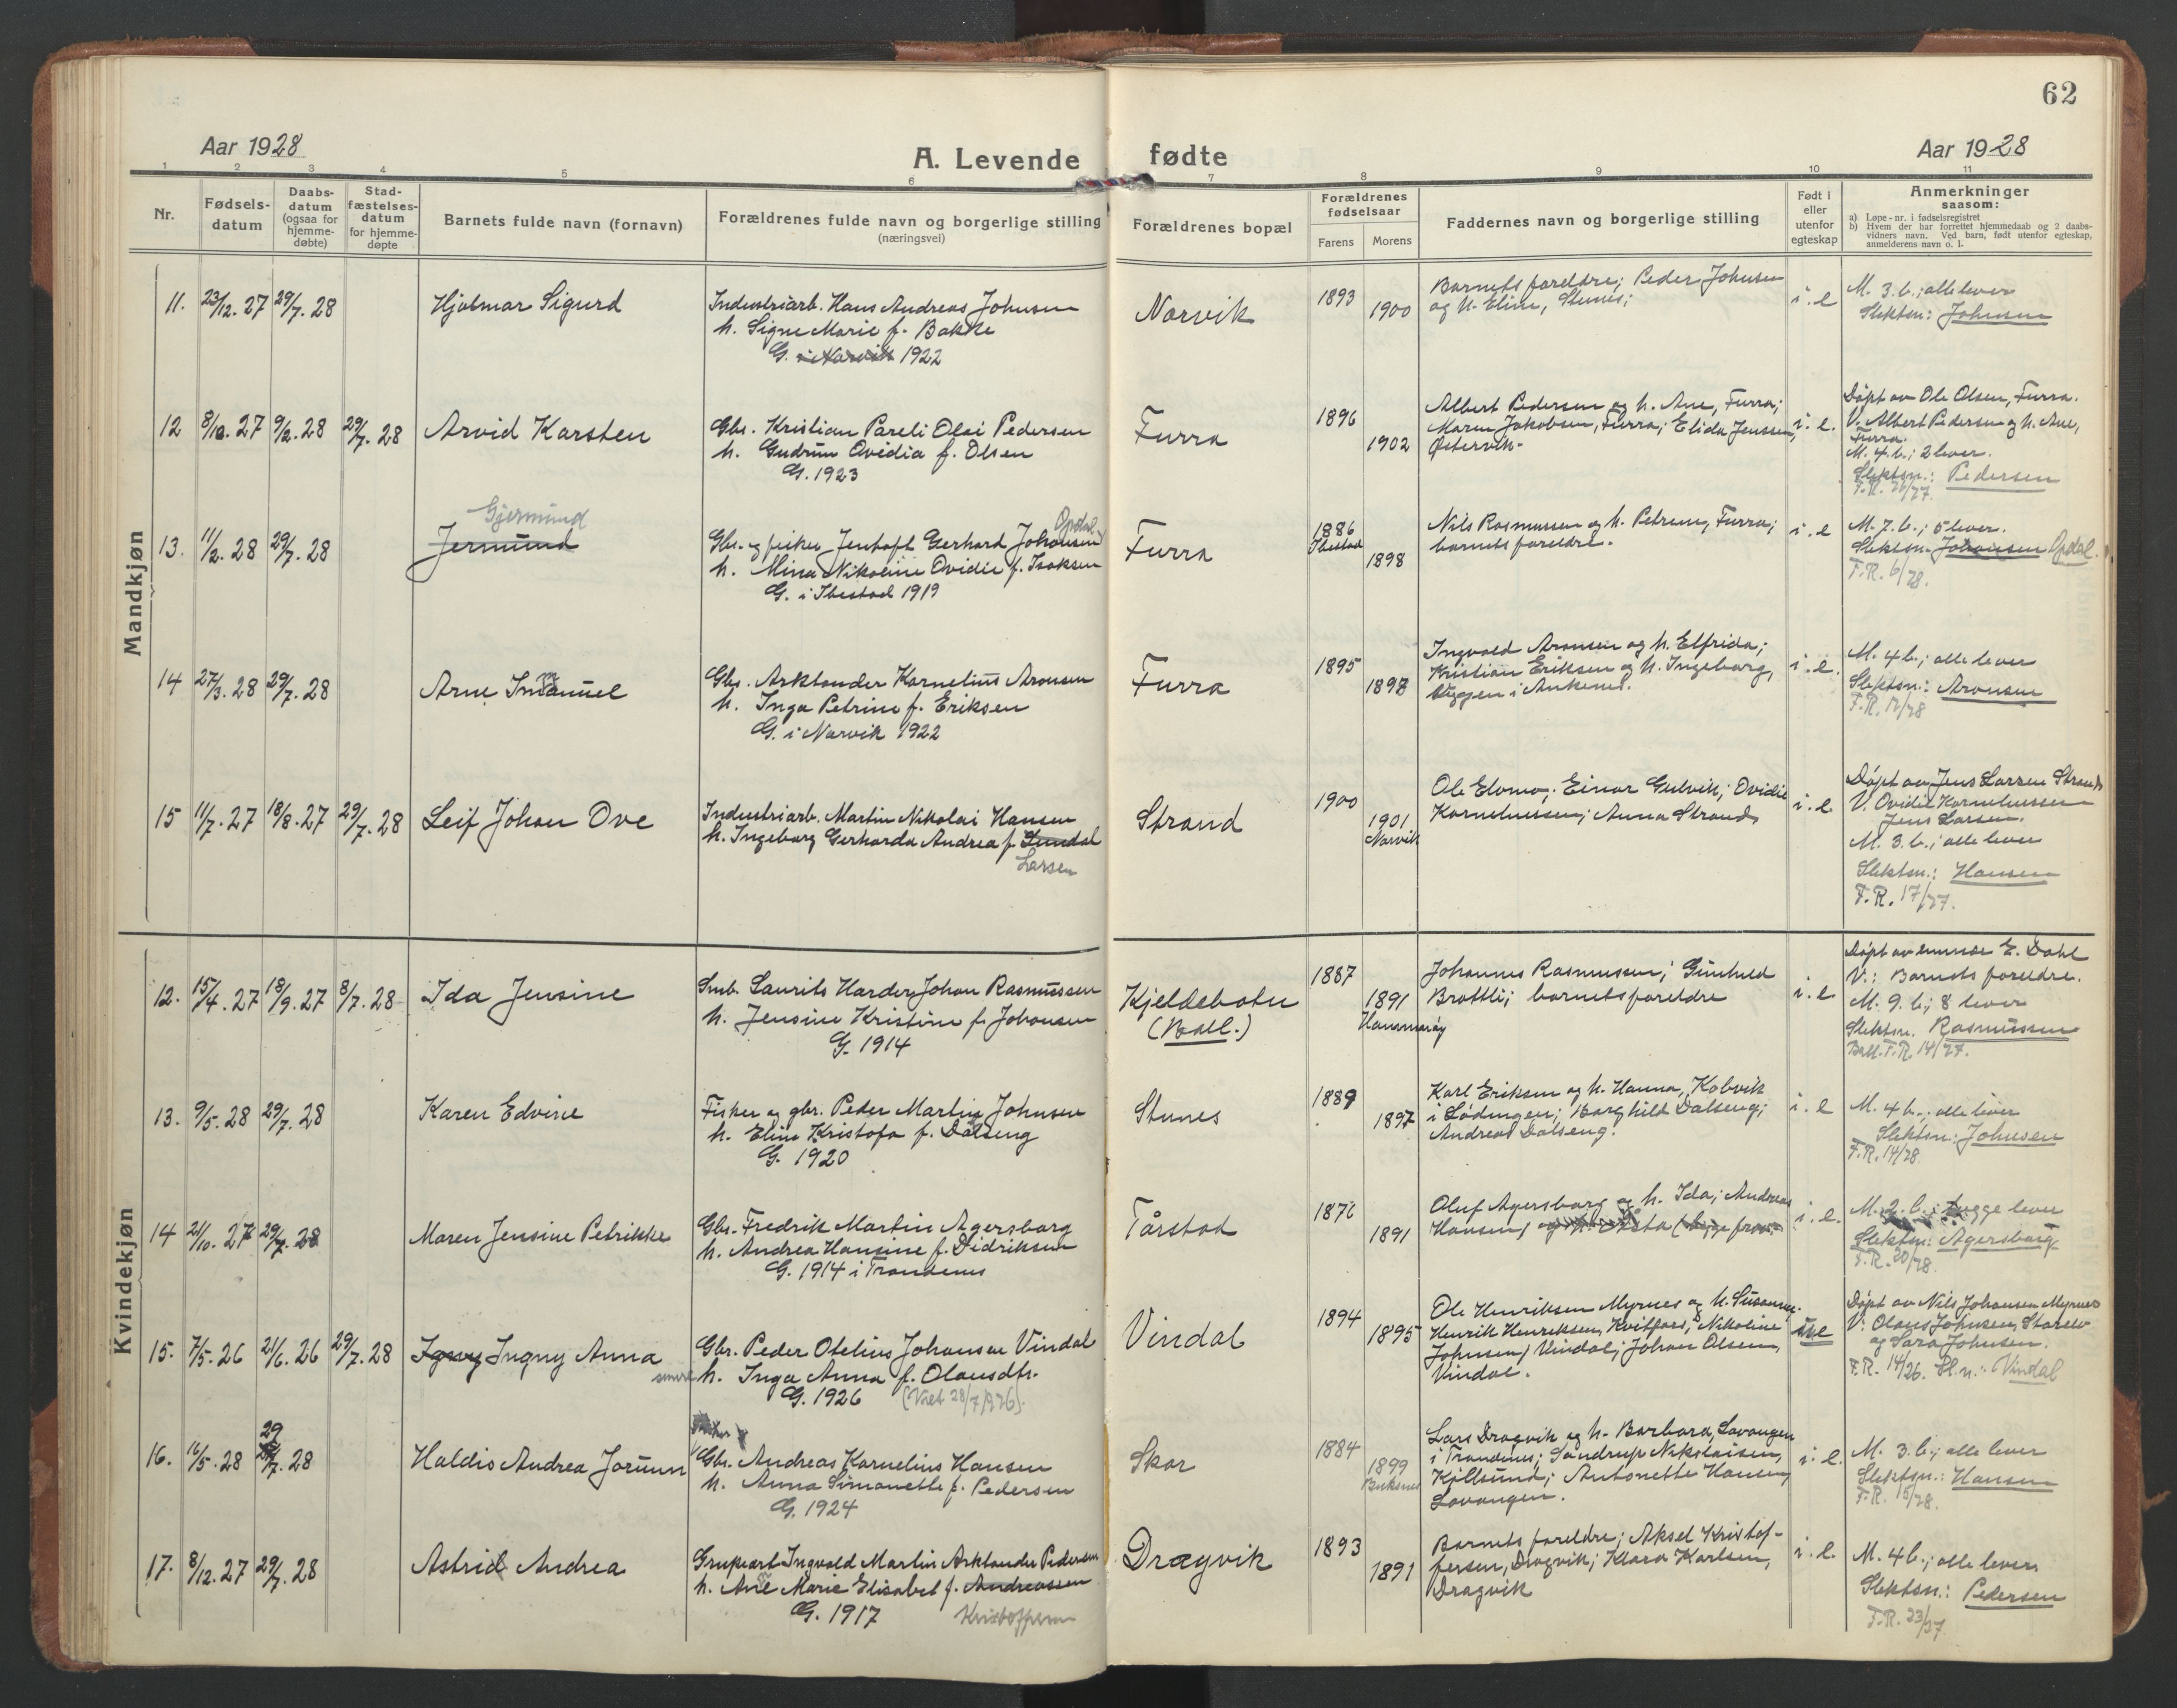 62
Aar 1928
A. Levende fødte
Aar 1928
1 2 3 4 5 6 7 8 9 10 11
Nr.
Fødsels-
datum
Daabs-
datum
(ogsaa for
hjemme-
døbte)
Stad-
fæstelses-
datum
for hjemme-
døpte
Barnets fulde navn (fornavn)
Forældrenes fulde navn og borgerlige stilling
(næringsvei)
Forældrenes bopæl
Forældrenes
fødselsaar
Farens Morens
Faddernes navn og borgerlige stilling
Født i
eller
utenfor
egteskap
Anmerkninger
saasom:
a) Løpe-nr. i fødselsregistret
b) Hvem der har forrettet hjemmedaab og 2 daabs-
vidners navn. Ved barn, født utenfor egteskap,
anmelderens navn o. l.
Mandkjøn
11. 23/12. 27 29/7. 28
Hjalmar Sigurd
Industriarb. Hans Andreas Johnsen
h. Signe Marie f. Bakke
G. i Narvik 1922
Narvik
1893
1900
Barnets foreldre; Peder Johnsen
og h. Eline, Stunes;
i. e
M. 3. b.; alle lever
Slektsn: Johnsen
12 8/12. 27 9/2. 28 29/7. 28
Arvid Karsten
Gbr. Kristian Pareli Olai Pedersen
h. Gudrun Ovedia f. Olsen
G. 1923
Furra
1896
1902
Albert Pedersen og h. Ane, Furra;
Maren Jakobsen, Furra; Elida Jenssen,
Østervik.
i. e.
Døpt av Ole Olsen, Furra.
V. Albert Pedersen og h. Ane,
Furra.
M. 4. b.; 2 lever.
Slektsn.: Pedersen
13. 11/2. 28 29/7. 28
Gjermund
Jermund
Opdal
Gbr. og fisker Jentoft Gerhard Johansen
h. Mina Nikoline Ovidie f. Isaksen
G. i Ibestad 1919
Furra
1886
Ibestad
1898
Nils Rasmussen og h. Petrine, Furra;
barnets foreldre.
i. e
M. 7. b.; 5 lever.
Slektsn. Johansen Opdal.
F.R. 6/28.
14 27/3. 28 29/7. 28
Arne Imanuel
Gbr. Arktander Kornelius Aronsen
h. Inga Petrine f. Eriksen
G. i Narvik 1922
Furra
1895
1898
Ingvald Aronsen og h. Elfrida;
Kristian Eriksen og h. Ingeborg,
i Ankenes.
i. e.
M. 4 b.; alle lever
Slektsn.: Aronsen
F.R. 12/28
15 11/7. 27 18/8. 27 29/7. 28
Leif Johan Ove
Industriarb. Martin Nikolai Hansen
h. Ingeborg Gerharda Andrea f. Sundal
Larsen
Strand
1900
1901
Narvik
Ole Elomo; Einar Gulvik; Ovidie
Korneliussen; Anna Strand
i. e.
Døpt av Jens Larsen Strand
V. Ovidie Korneliussen
Jens Larsen.
M. 3. b.; alle lever
Slektsn.: Hansen
F.R. 17/27.
Kvindekjøn
12. 15/4. 27 18/9. 27 8/7. 28
Ida Jensine
Smb. Laurits Harder Johan Rasmussen
h. Jensine Kristine f. Johansen
G. 1914
Kjeldebotn
(Ball.)
1887
1891
Hammarøy
Johannes Rasmussen; Gunhild
Brattli; barnets foreldre
i. e
Døpt av E. Dahl
V.: Barnets foreldre.
M. 9. b.; 8 lever
Slektsn. Rasmussen
Ball. F.R. 14/27.
13. 9/5. 28 29/7. 28
Karen Edvine
Fisker og gbr. Peder Martin Johnsen
h. Eline Kristofa f. Dalseng
G. 1920
Stunes
1889
1897
Karl Eriksen og h. Hanna, Kobvik
i Lødingen; Borghild Dalseng;
Andreas Dalseng.
i. e
M. 4 b.; alle lever
Slektsn: Johnsen
F.R. 14/28
14 21/10. 27 29/7. 28
Maren Jensine Petrikke
Gbr. Fredrik Martin Agersborg
h. Andrea Hansine f. Didriksen
G. 1914 i Trondenes
Tårstad
1876
1891
Oluf Agersborg og h. Ida; Andreas
Hansen
i. e.
M. 2. b.; begge lever
Slektsn: Agersborg
F.R. 20/28.
15. 7/5. 26 21/6. 26 29/7. 28
Ingny Anna
Gbr. Peder Otelius Johansen Vindal
h. Inga Anna f. Olausdtr.
G. 1926 (Viet 28/7 1926).
Vindal
1894
1895
Ole Henriksen Myrnes og h. Susanna.
Henrik Henriksen, Kvitfors; Nikoline
Johnsen, Vindal; Johan Olsen,
Vindal.
Døpt av Nils Johansen Myrnes
V: Olaus Johnsen, Storelv
og Sara Johnsen.
F.R. 14/26. Sl.n.: Vindal
16. 16/5. 28 29/7. 28
Haldis Andrea Jorunn
Gbr. Andreas Kornelius Hansen
h. Anna Simonette f. Pedersen
G. 1924
Skar
1884
1899
Buksnes
Lars Dragvik og h. Barbara, Lavangen
i Trondenes; Sandrup Nikolaisen,
Kjellsund; Antonette Hansen,
Lavangen.
i. e.
M. 3. b.; alle lever
Slektsn.: Hansen
F.R. 15/28.
17. 8/12. 27 29/7. 28
Astrid Andrea
Grubearb. Ingvald Martin Arktander Pedersen
h. Ane Marie Elisabet f. Andreassen
G. 1917 Kristoffersen
Dragvik
1893
1891
Barnets foreldre; Aksel Kristof-
fersen, Dragvik; Klara Karlsen,
Dragvik
i. e.
M. 4 b.; alle lever
Slektsn.: Pedersen
F.R. 23/27